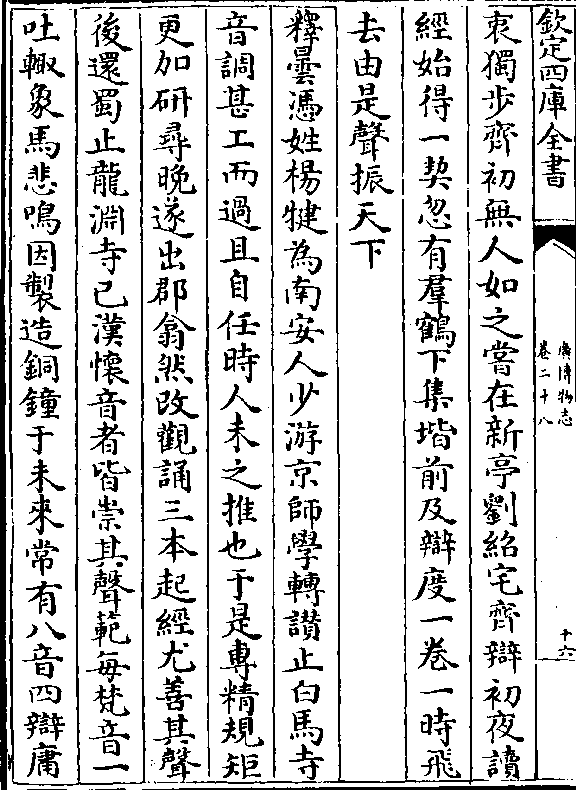 欽定四庫全書
廣博物志
卷二十八
十六
衷獨步齊初無人如之嘗在新亭劉紹宅齊辯初夜讀
經始得一契忽有羣鶴下集堦前及辯度一卷一時飛
去由是聲振天下
釋曇憑姓楊犍為南安人少游京師學轉讃止白馬寺
音調甚工而過且自任時人未之推也于是專精規矩
更加研尋晚遂出郡翕然改觀誦三本起經尤善其聲
後還蜀止龍淵寺巴漢懷音者皆崇其聲範每梵音一
吐輙象馬悲鳴因製造銅鐘于未來常有八音四辯庸